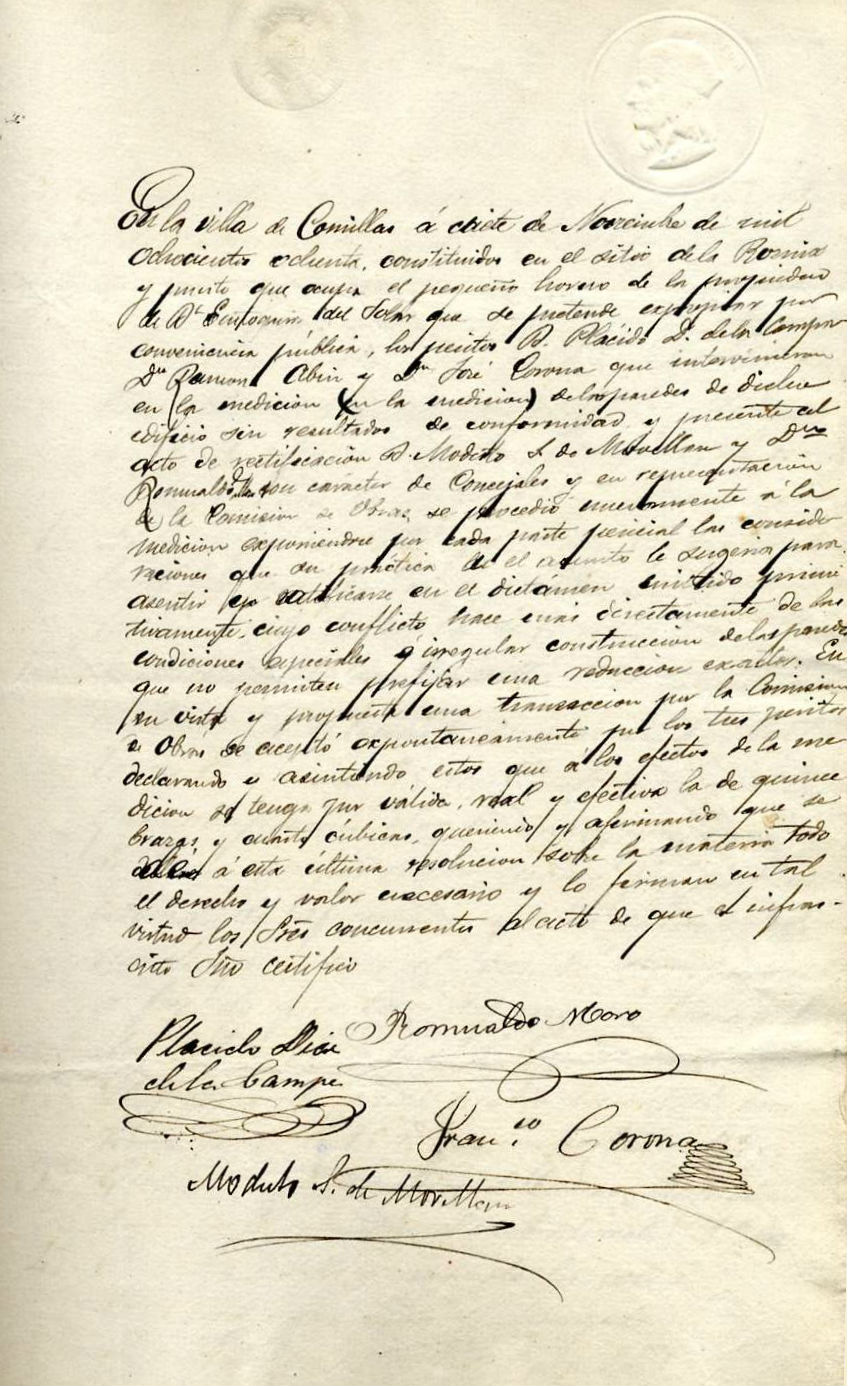 En la villa de Comillas á siete de Noviembre de mil
ochocientos ochenta, constituidos en el sitio de la
y punto que ocupa el pequeño horno de la propiedad
de Dª del Solar que se pretende expropiar por
conveniencia pública, los peritos D. Plácido D. de la Campa
Dn Ramon Abin y Dn José Corona que intervinieron
en la medicion (en la medicion) de las paredes de dicho
edificio sin resultados de conformidad y presente al
acto de rectificacion D. Modesto S. de Movellan y Dn
Romualdo con caracter de Concejales y en representacion
de la Comision de Obras, se procedió nuevamente á la
medicion exponiendose por cada parte pericial las conside
raciones que su práctica en el asunto le sugeria para
asentir ó ratificarse en el dictámen emitido primi
tivamente, cuyo conflicto nace mas directamente de las
condiciones especiales é irregular construccion de las paredes
que no permiten prefijar una reduccion exacta. En
su vista y propuesta una transaccion por la Comision
de Obras se aceptó expontaneamente por los tres peritos
declarando y asintiendo estos que á los efectos de la me
dicion se tenga por válida, real y efectiva la de quince
brazas y cuarta cúbicas, queriendo y afirmando que se
dá á esta última resolucion sobre la materia todo
el derecho y valor necesario y lo firman en tal
virtud los Sres concurrentes al acto de que el infras-
crito Srio certifico
Placido Diaz Romualdo Moro
de la Campa
Fran.co Corona
Modesto S. de Movellan